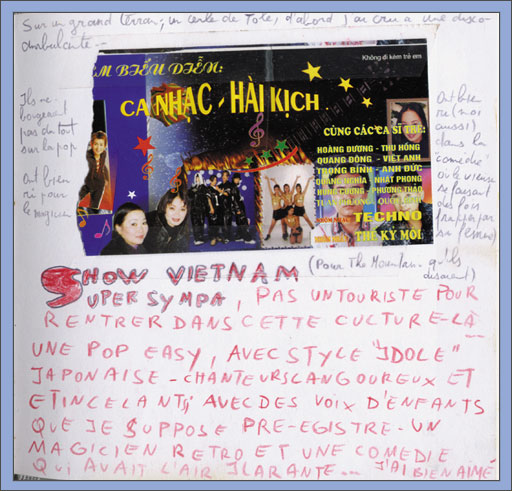 Sur un grand terrain, un cercle de tole, d'abord j'ai cru a une disco-
ambulante --
Ils ne
bougeaient
pas du tout
sur la pop
Ont bien
ri pour
le magicien
M BIỂU DIỄN:
Không đi kèm trẻ em
CA NHẠC - HÀI KỊCH
CÙNG CÁC CA SĨ TRẺ:
HOÀNG DƯƠNG - THU HỒNG
QUANG DÔNG - VIỆT ANH
TRỌNG BÌNH - ANH ĐỨC
NGHĨA - NHẬT PHONG
PHƯƠNG THẢO
TECHNO
THẾ KỶ MỚI
Ont bien
ri (moi
aussi)
dans la
"comedie"
où le vieux
se faisait
des fois
frapper par
sa femme)
SHOW VIETNAM (Pour The Mountain. qu'ils
disaient)
SUPER SYMPA, PAS UN TOURISTE POUR
RENTRER DANS CETTE CULTURE-LÀ
UNE POP EASY, AVEC STYLE "IDOLE"
JAPONAISE - CHANTEURS LANGOUREUX ET
ETINCELANTS AVEC DES VOIX D'ENFANTS
QUE JE SUPPOSE PRE-EGISTRE - UN
MAGICIEN RETRO ET UNE COMEDIE
QUI AVAIT L'AIR ILARANTE... J'AI BIEN AIMÉ